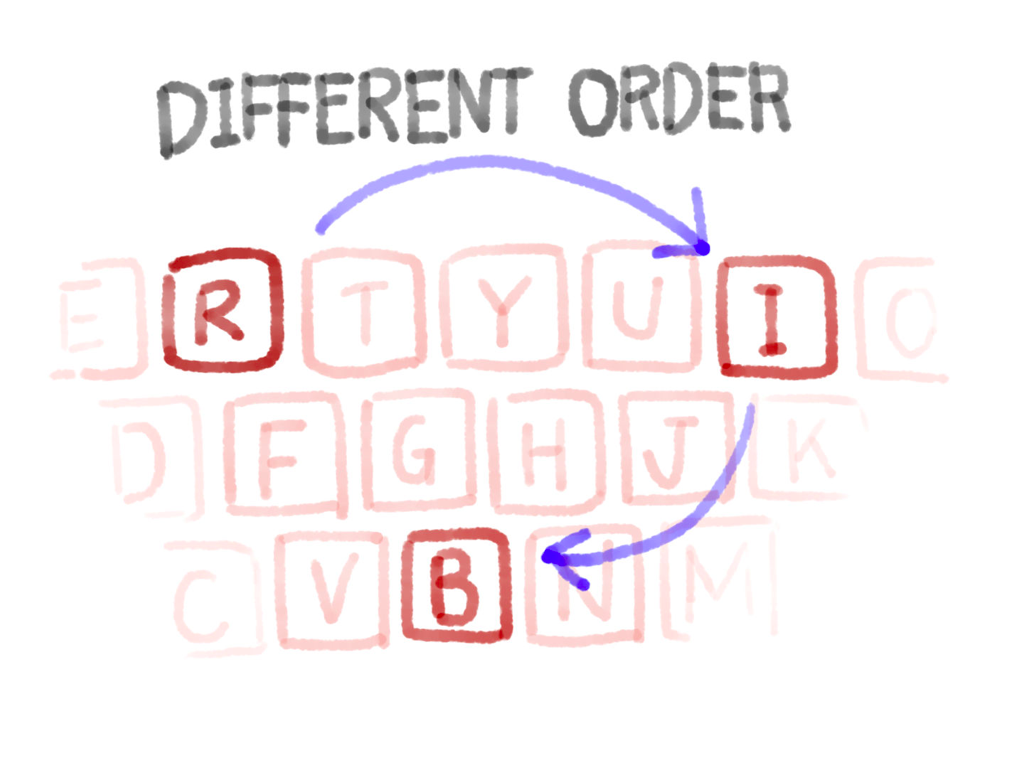 DIFFERENT ORDER
E R T Y U I O
D F G H J K
C V B N M